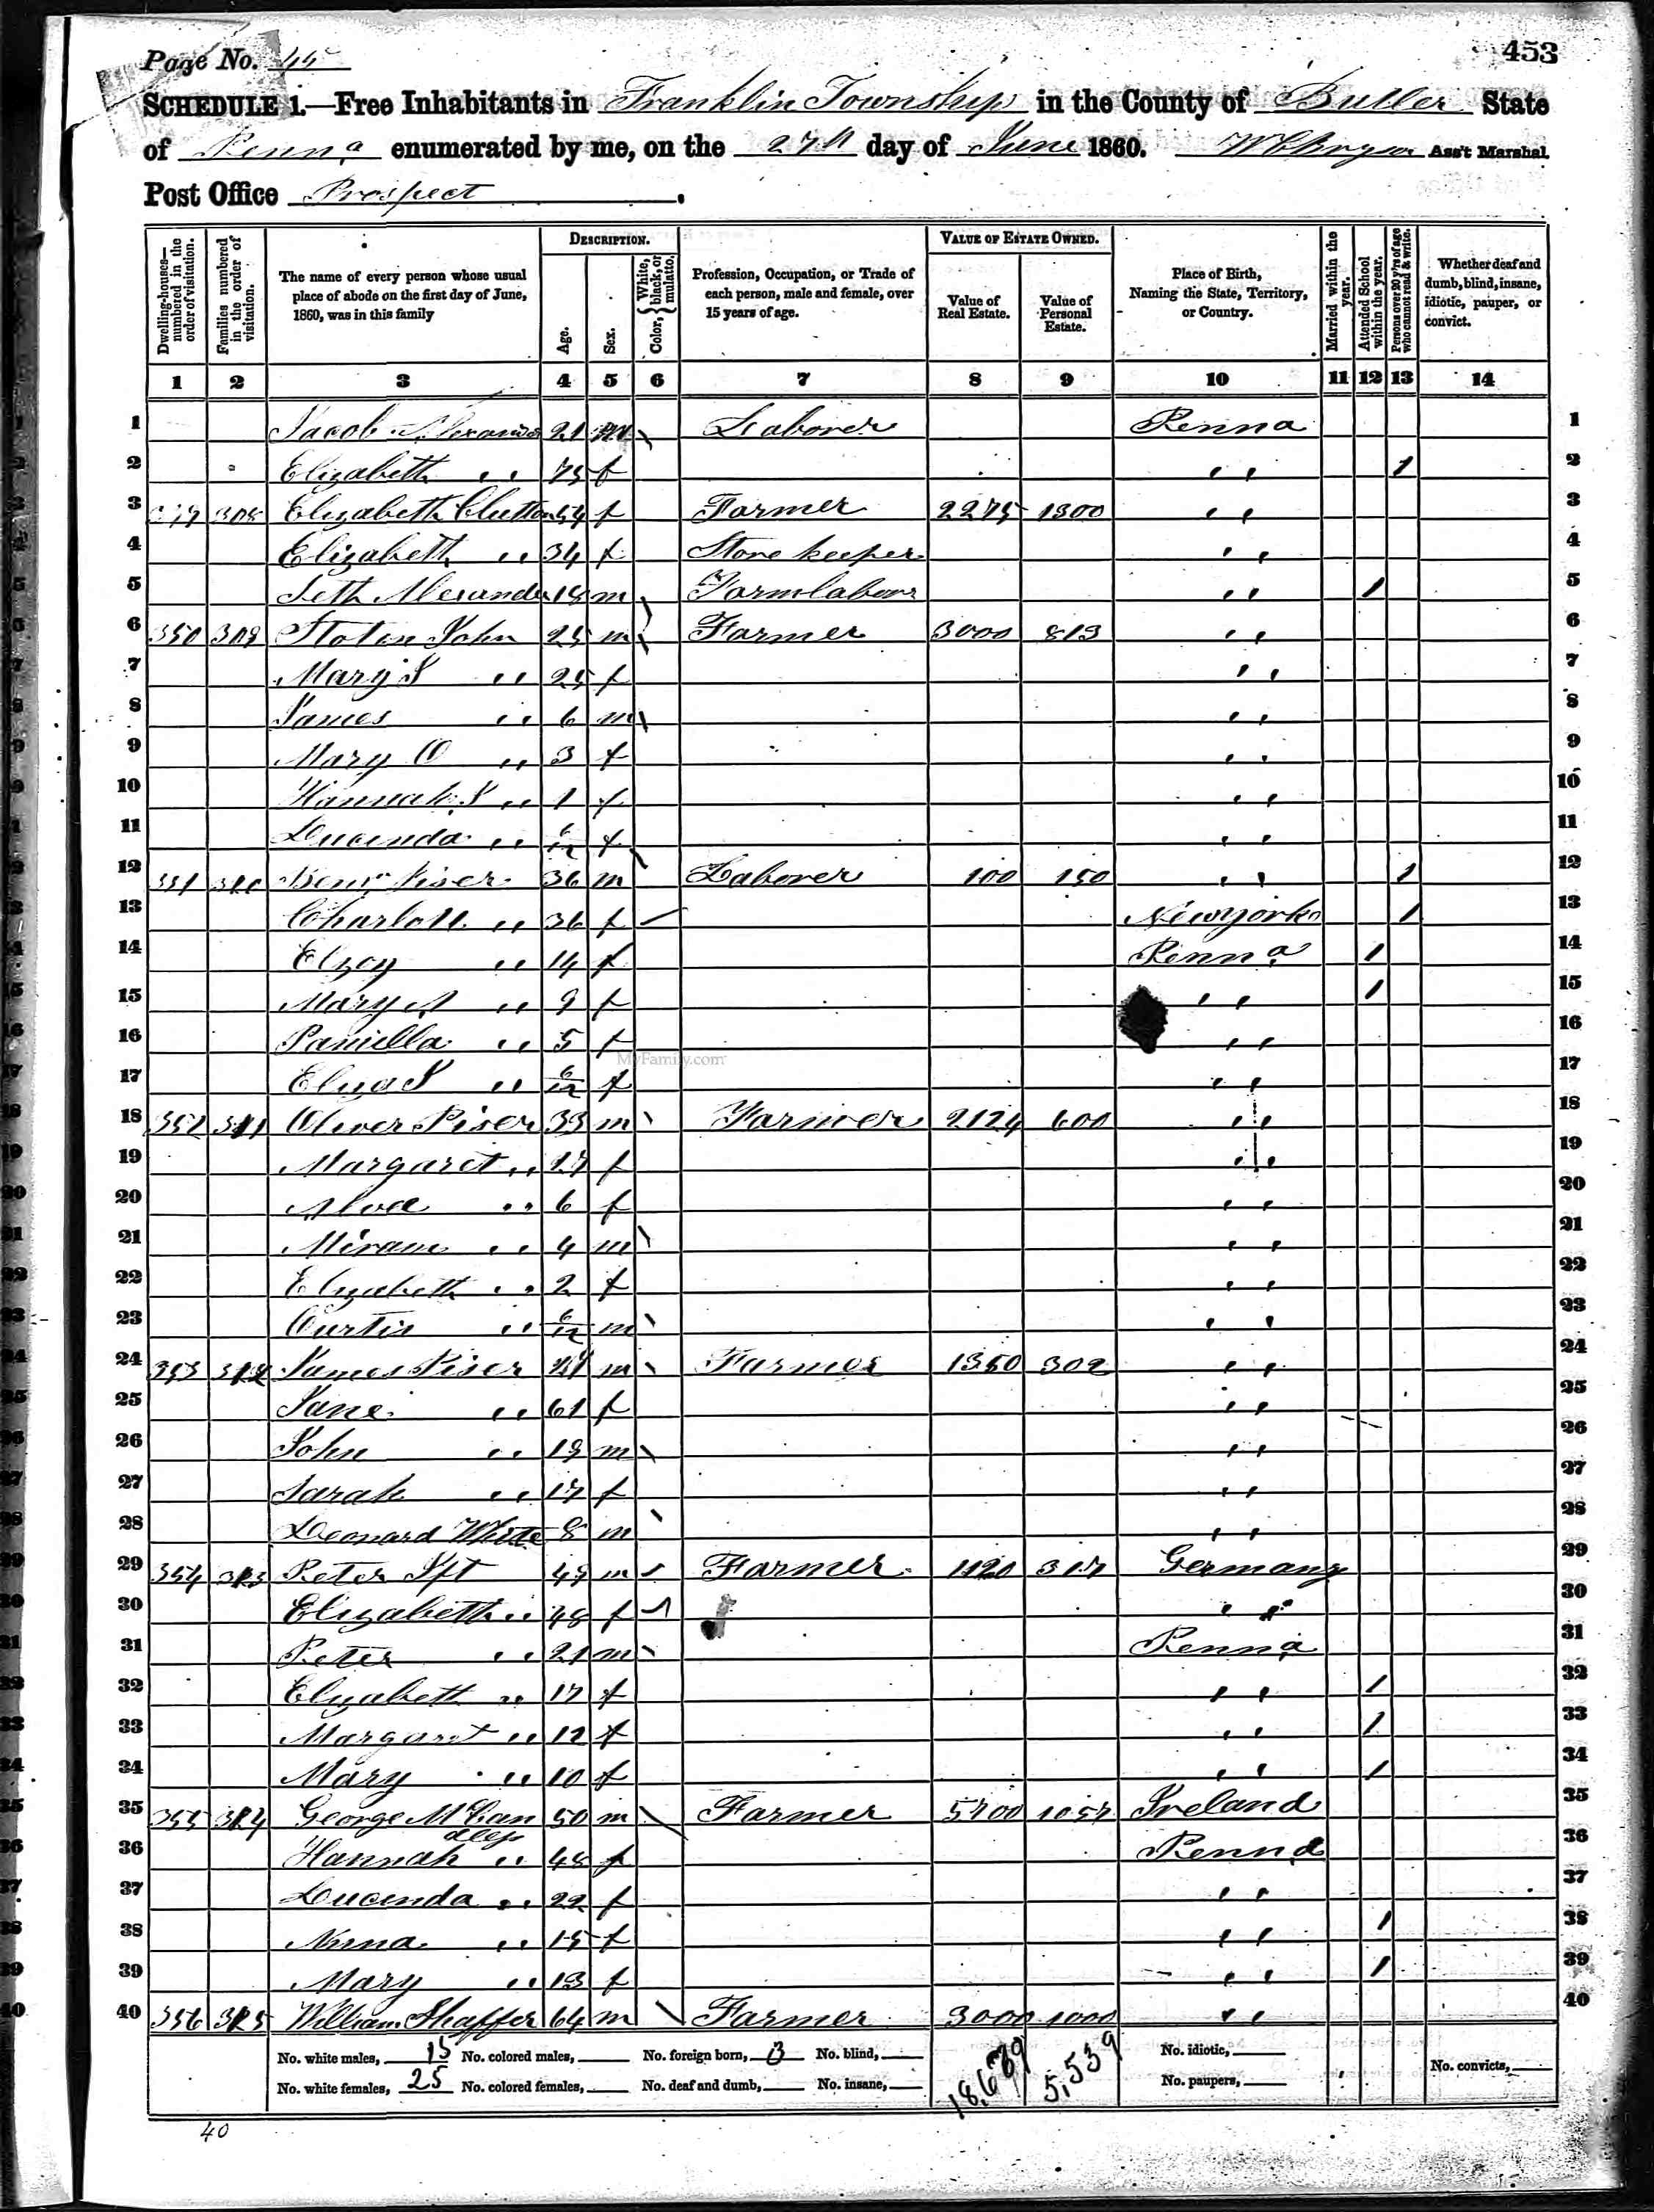 Page No. 45
453
SCHEDULE 1.—Free Inhabitants in Franklin Township in the County of Butler State
of Penna enumerated by me, on the 27th day of June 1860. Ass't Marshal.
Post Office Prospect.
Dwelling-houses—numbered in the order of visitation.
Families numbered in the order of visitation.
The name of every person whose usual place of abode on the first day of June, 1860, was in this family
DESCRIPTION.
Age.
Sex.
Color, { White, black, or mulatto.
Profession, Occupation, or Trade of each person, male and female, over 15 years of age.
VALUE OF ESTATE OWNED.
Value of Real Estate.
Value of Personal Estate.
Place of Birth, Naming the State, Territory, or Country.
Married within the year.
Attended School within the year.
Persons over 20 y'rs of age who cannot read & write.
Whether deaf and dumb, blind, insane, idiotic, pauper, or convict.
1 2 3 4 5 6 7 8 9 10 11 12 13 14
1 Jacob Alexander 21 m Laborer Penna 1
2 Elizabeth " 75 f " " 1 2
3 308 Elizabeth Clutton 54 f Farmer 2275 1300 " " 3
4 Elizabeth " 34 f Store keeper " " 4
5 Seth Alexander 18 m Farm labour " " 1 5
6 350 309 John 25 m Farmer 3000 813 " " 6
7 Mary S " 25 f " " 7
8 James " 6 m " " 8
9 Mary O " 3 f " " 9
10 Hannah S " 1 f " " 10
11 Lucinda " 6/12 f " " 11
12 351 310 Benj Piser 36 m Laborer 100 150 " " 1 12
13 Charlott " 36 f New york 1 13
14 " 14 f Penna 1 14
15 Mary A " 9 f " " 1 15
16 Pamilla " 5 f " " 16
MyFamily.com
17 Eliza S " 6/12 f " " 17
18 352 311 Oliver Piser 33 m Farmer 2124 600 " " 18
19 Margaret " 27 f " " 19
20 " 6 f " " 20
21 " 4 m " " 21
22 Elizabeth " 2 f " " 22
23 Curtis " 6/12 m " " 23
24 353 312 James Piser m Farmer 1350 302 " " 24
25 Jane " 61 f " " 25
26 John " 19 m " " 26
27 Sarah " 17 f " " 27
28 Leonard White 8 m " " 28
29 354 313 Peter Ift 49 m Farmer 1120 317 Germany 29
30 Elizabeth " 48 f " " 30
31 Peter " 21 m Penna 31
32 Elizabeth " 17 f " " 1 32
33 Margaret " 12 f " " 1 33
34 Mary " 10 f " " 1 34
35 355 314 George McCan 50 m Farmer 5700 1057 Ireland 35
dless
36 Hannah " 48 f Penna 36
37 Lucinda " 22 f " " 37
38 " 15 f " " 1 38
39 Mary " 13 f " " 1 39
40 356 315 William Shaffer 64 m Farmer 3000 1000 " " 40
No. white males, 15 No. colored males, No. foreign born, 3 No. blind, No. idiotic,
No. white females, 25 No. colored females, No. deaf and dumb, No. insane, 5,539 No. paupers, No. convicts,
40